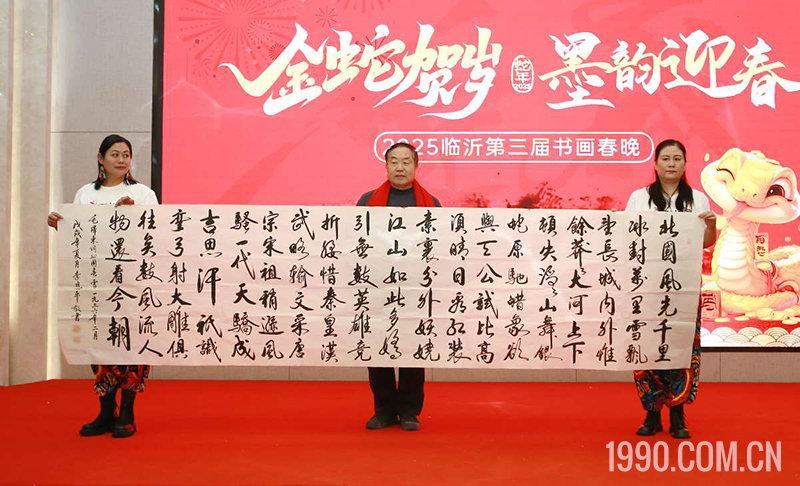 金蛇贺岁
蛇年
2025
墨韵迎春
2025临沂第三届书画春晚
北國風光千里
冰封萬里雪飄
望長城内外惟
餘莽々大河上下
頓失滔々山舞銀
蛇原馳蜡象欲
與天公試比高
須晴日看紅裝
素裹分外妖嬈
江山如此多嬌
引無數英雄競
折腰惜秦皇漢
武略輸文采唐
宗宋祖稍遜風
騷一代天驕成
吉思汗祇識
彎弓射大雕俱
往矣數風流人
物還看今朝
毛澤東词沁園春雪一九三六年二月
戊戌年夏月李
敬書
1990.COM.CN